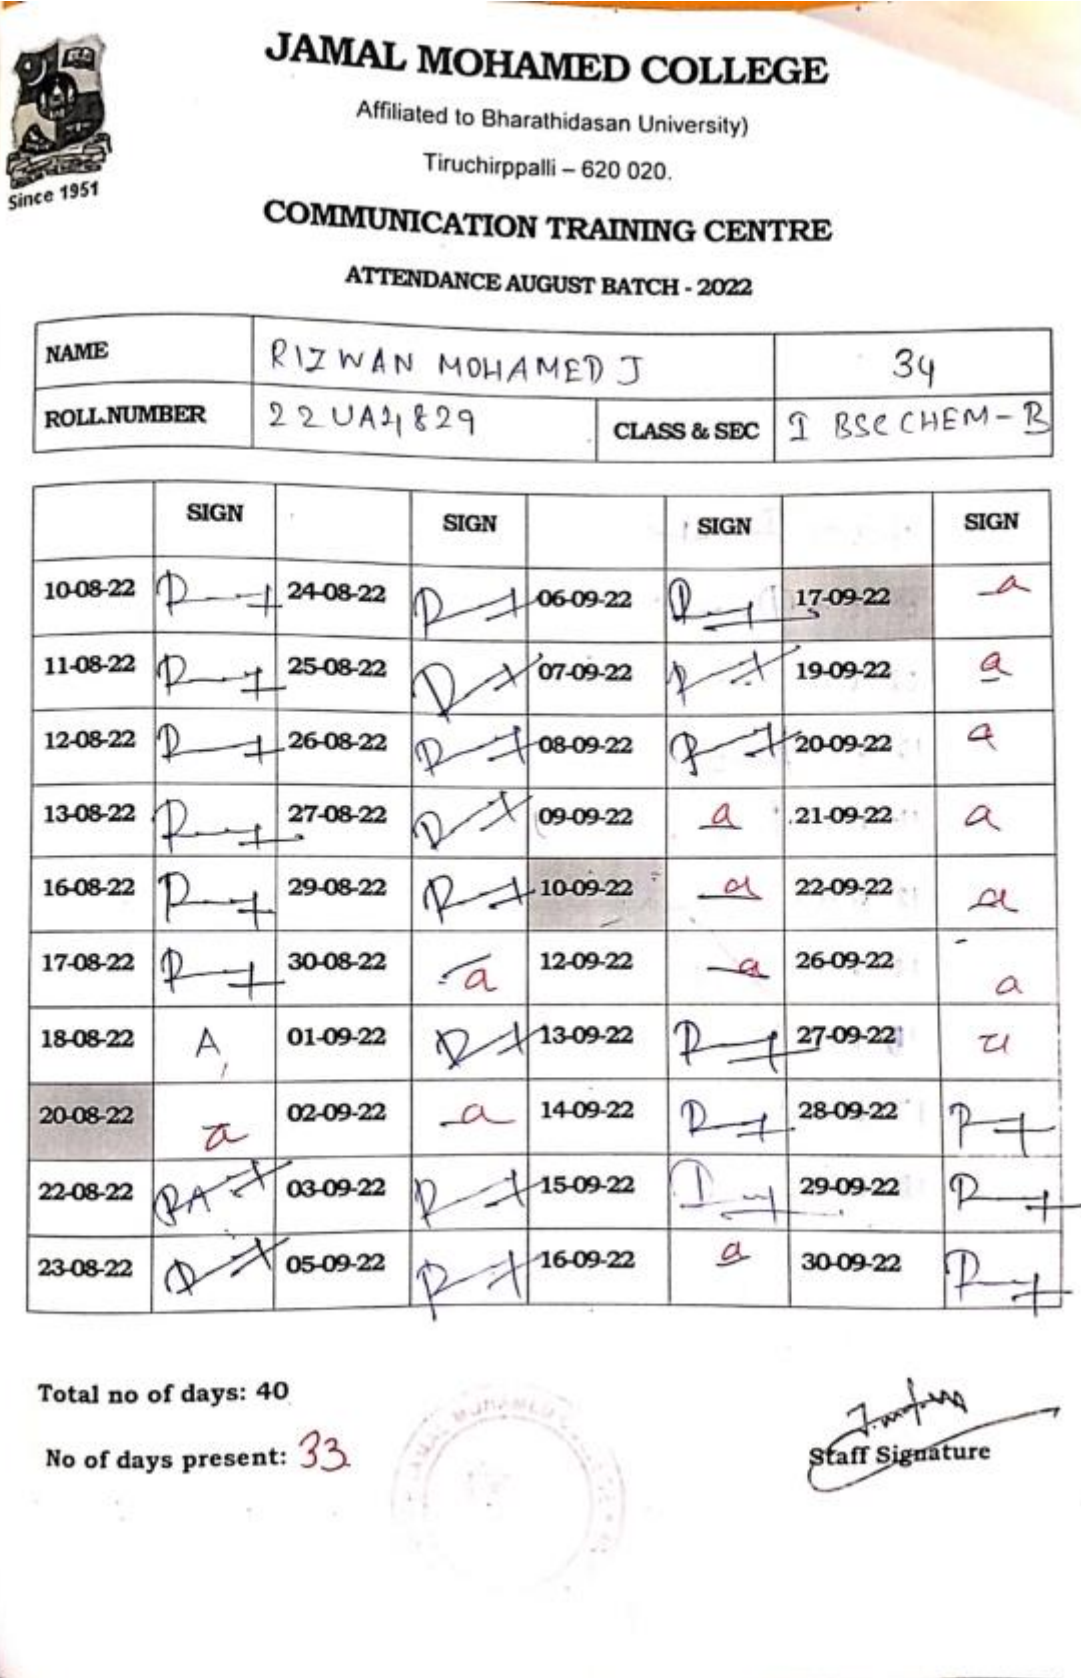 JAMAL MOHAMED COLLEGE
Affiliated to Bharathidasan University)
Tiruchirppalli – 620 020.
Since 1951
COMMUNICATION TRAINING CENTRE
ATTENDANCE AUGUST BATCH - 2022
NAME RIZWAN MOHAMED J 34
ROLL.NUMBER 22UA4829 CLASS & SEC I BSC CHEM-B
SIGN SIGN SIGN SIGN
10-08-22 24-08-22 06-09-22 17-09-22 a
11-08-22 25-08-22 07-09-22 19-09-22 a
12-08-22 26-08-22 08-09-22 20-09-22 a
13-08-22 27-08-22 09-09-22 a 21-09-22 a
16-08-22 29-08-22 10-09-22 a 22-09-22 a
17-08-22 30-08-22 a 12-09-22 a 26-09-22 a
18-08-22 A 01-09-22 13-09-22 27-09-22 a
20-08-22 a 02-09-22 a 14-09-22 28-09-22
22-08-22 03-09-22 15-09-22 29-09-22
23-08-22 05-09-22 16-09-22 a 30-09-22
Total no of days: 40
No of days present: 33
Staff Signature